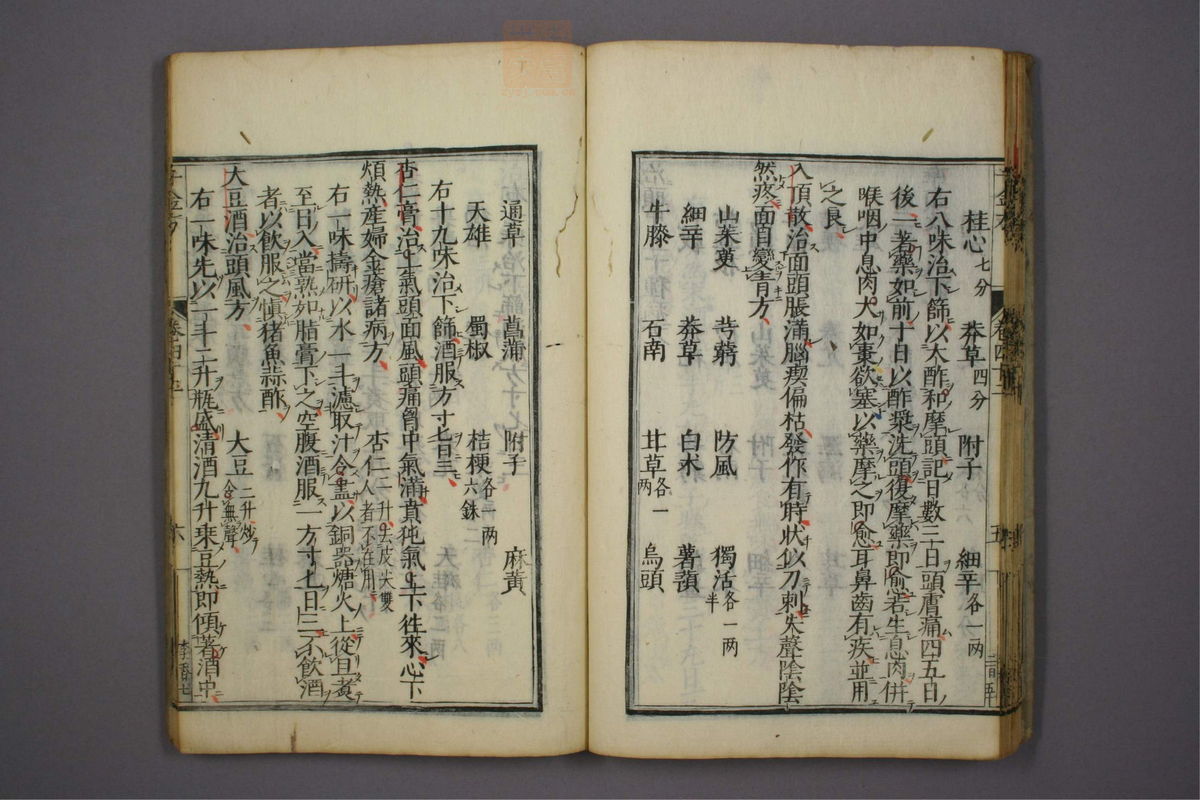 桂心七分 莽草四分 附子 細辛各一兩
右八味治下篩以大酢和摩頭記日數三日頭膚痛四五日
後一著藥如前十日以酢漿洗頭復摩藥即愈若生息肉併
喉咽中息肉大如棗欲塞以藥摩之即愈耳鼻齒有疾並用
之良
入頂散治面頭脹滿腦瘈偏枯發作有時狀似刀刺失聲陰陰
然疼面目變青方
山茱萸 芎藭 防風 獨活各一兩半
細辛 莽草 白朮 薯蕷
牛膝 石南 甘草各一兩 烏頭
通草 菖蒲 附子 麻黃
天雄 蜀椒 桔梗各一兩六銖
右十九味治下篩酒服方寸匕日三
杏仁膏治上氣頭面風頭痛胷中氣滿賁㹠氣上下徃來心下
煩熱產婦金瘡諸病方 杏仁二升去皮尖雙人者不在用
右一味擣研以水一斗濾取汁令盡以銅器煻火上從旦煑
至日入當熟如脂膏下之空腹酒服一方寸匕日三不飲酒
者以飲服之慎猪魚蒜酢
大豆酒治頭風方 大豆二升炒令無聲
右一味先以一斗二升瓶盛清酒九升乘豆熱即傾著酒中
千金方 卷四十五 六